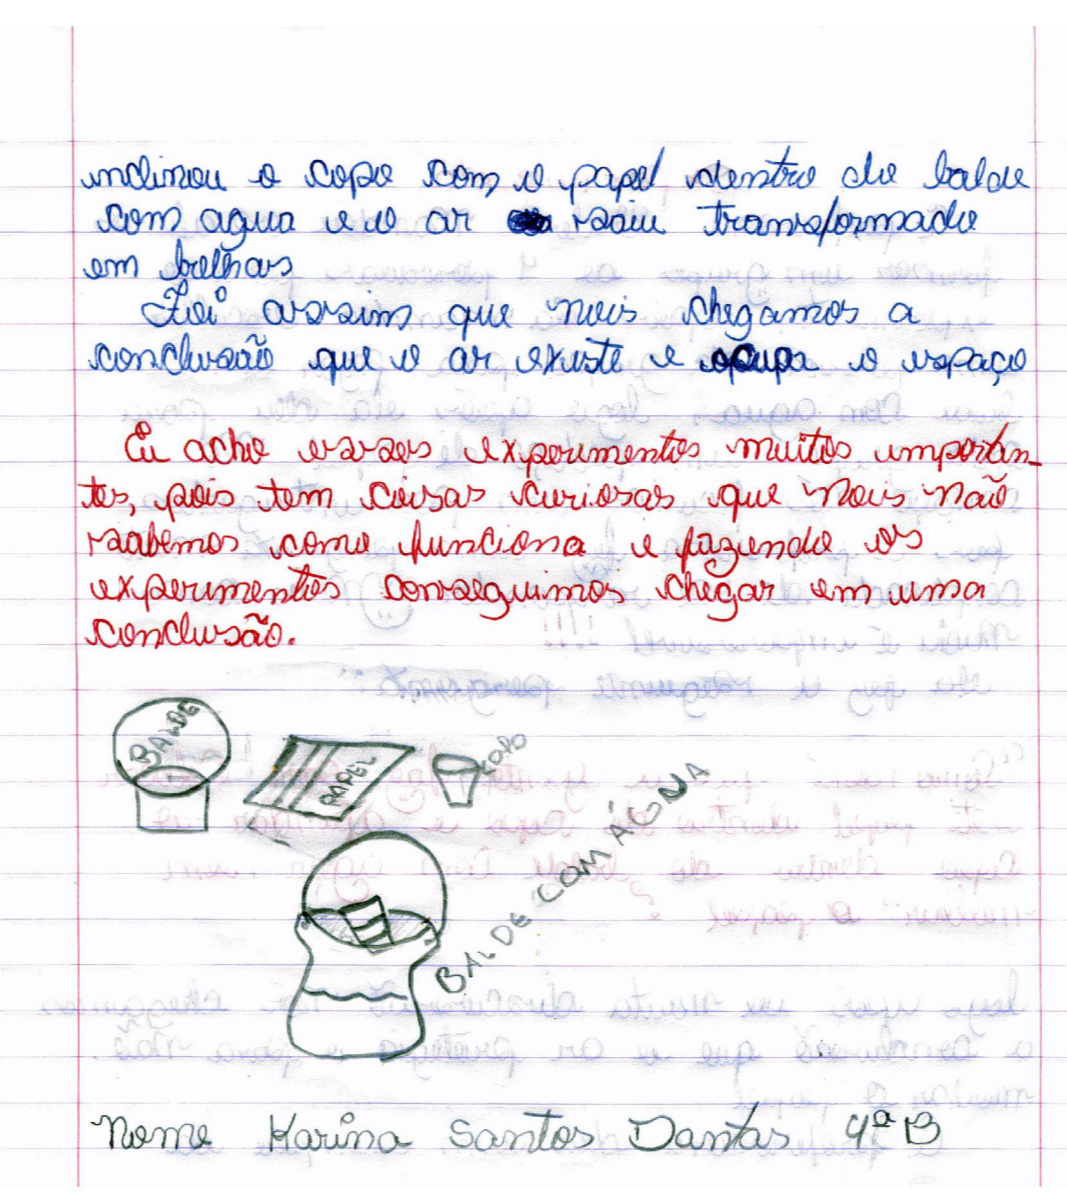 inclinou o copo com o papel dentro do balde
com agua e o ar saiu transformado
em bolhas
Foi assim que nois chegamos a
conclusão que o ar existe e ocupa o espaço
Eu acho esses experimentos muitos importan-
tes, pois tem coisas curiosas que nois não
sabemos como funciona e fazendo os
experimentos conseguimos chegar em uma
conclusão.
BALDE
PAPEL
COPO
BALDE COM ÁGUA
Nome Karina Santos Dantas 4ª B